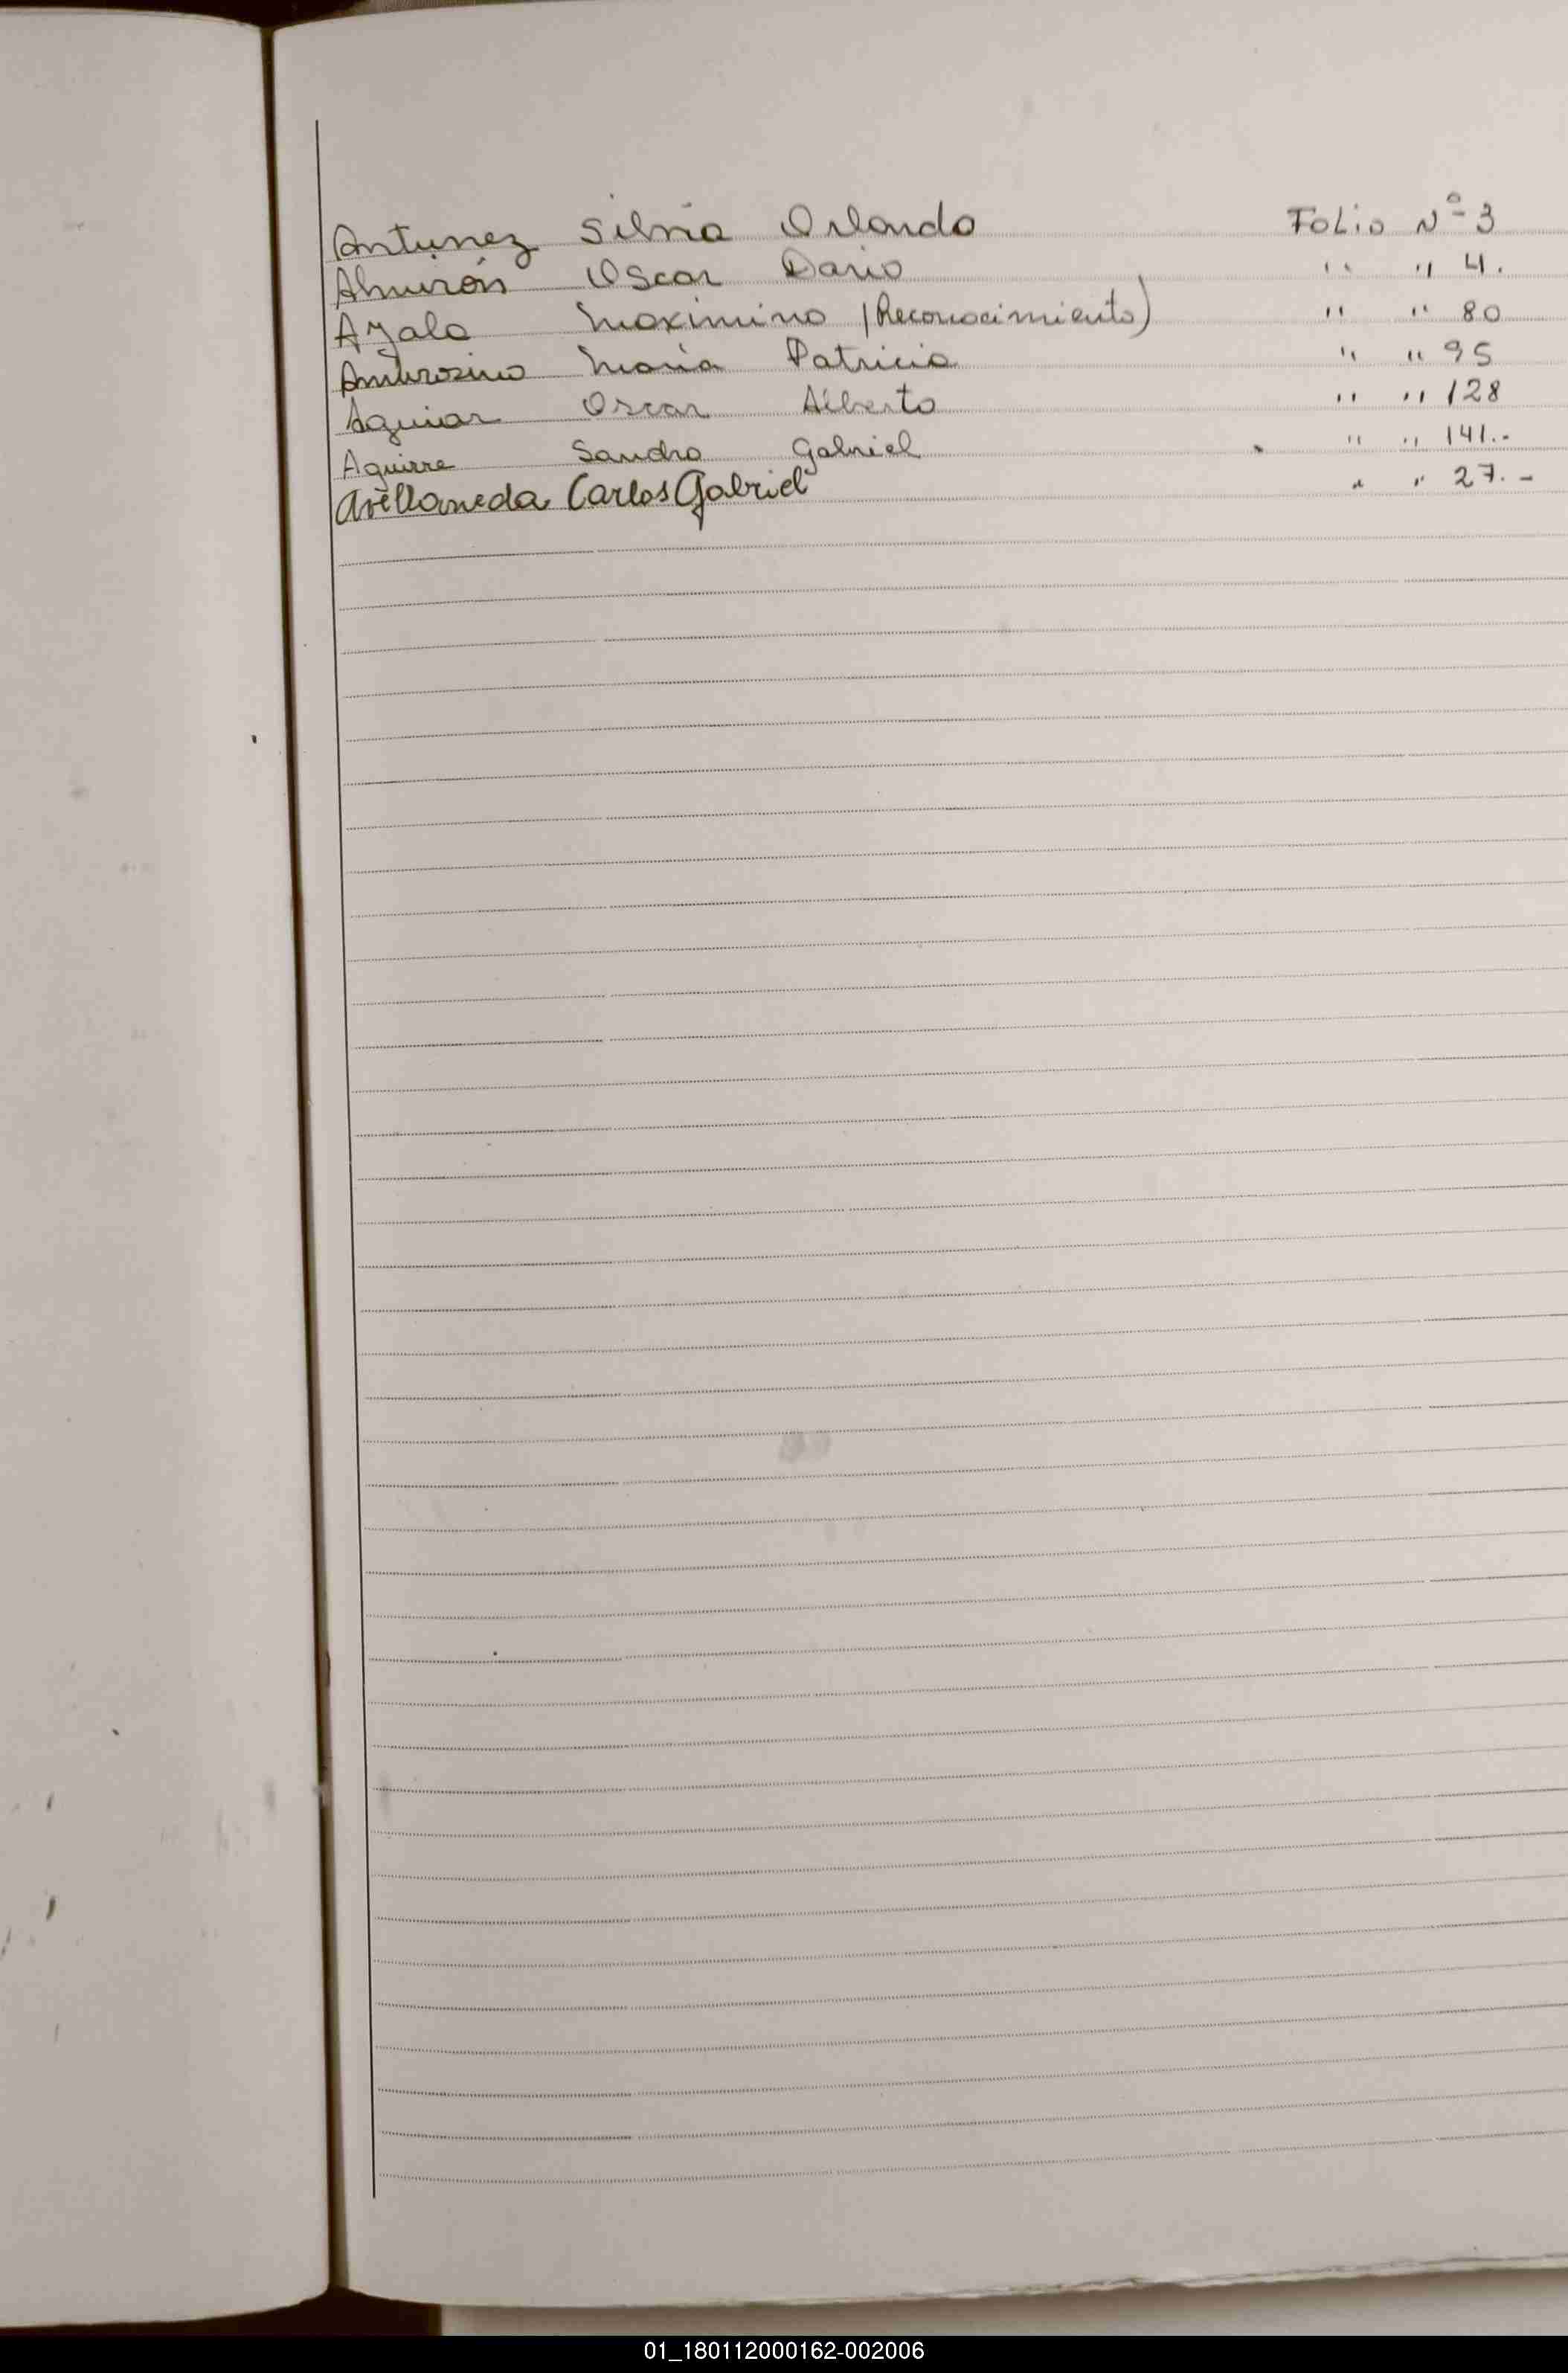 Antunez Silvia Orlando Folio Nº 3
Almirón Oscar Dario " " 4.
Ayala Maximino (Reconocimiento) " " 80
Ambrosino María Patricia " " 95
Aguiar Oscar Alberto " " 128
Aguirre Sandro Gabriel " " 141.-
Avellaneda Carlos Gabriel " " 27.-
01_180112000162-002006